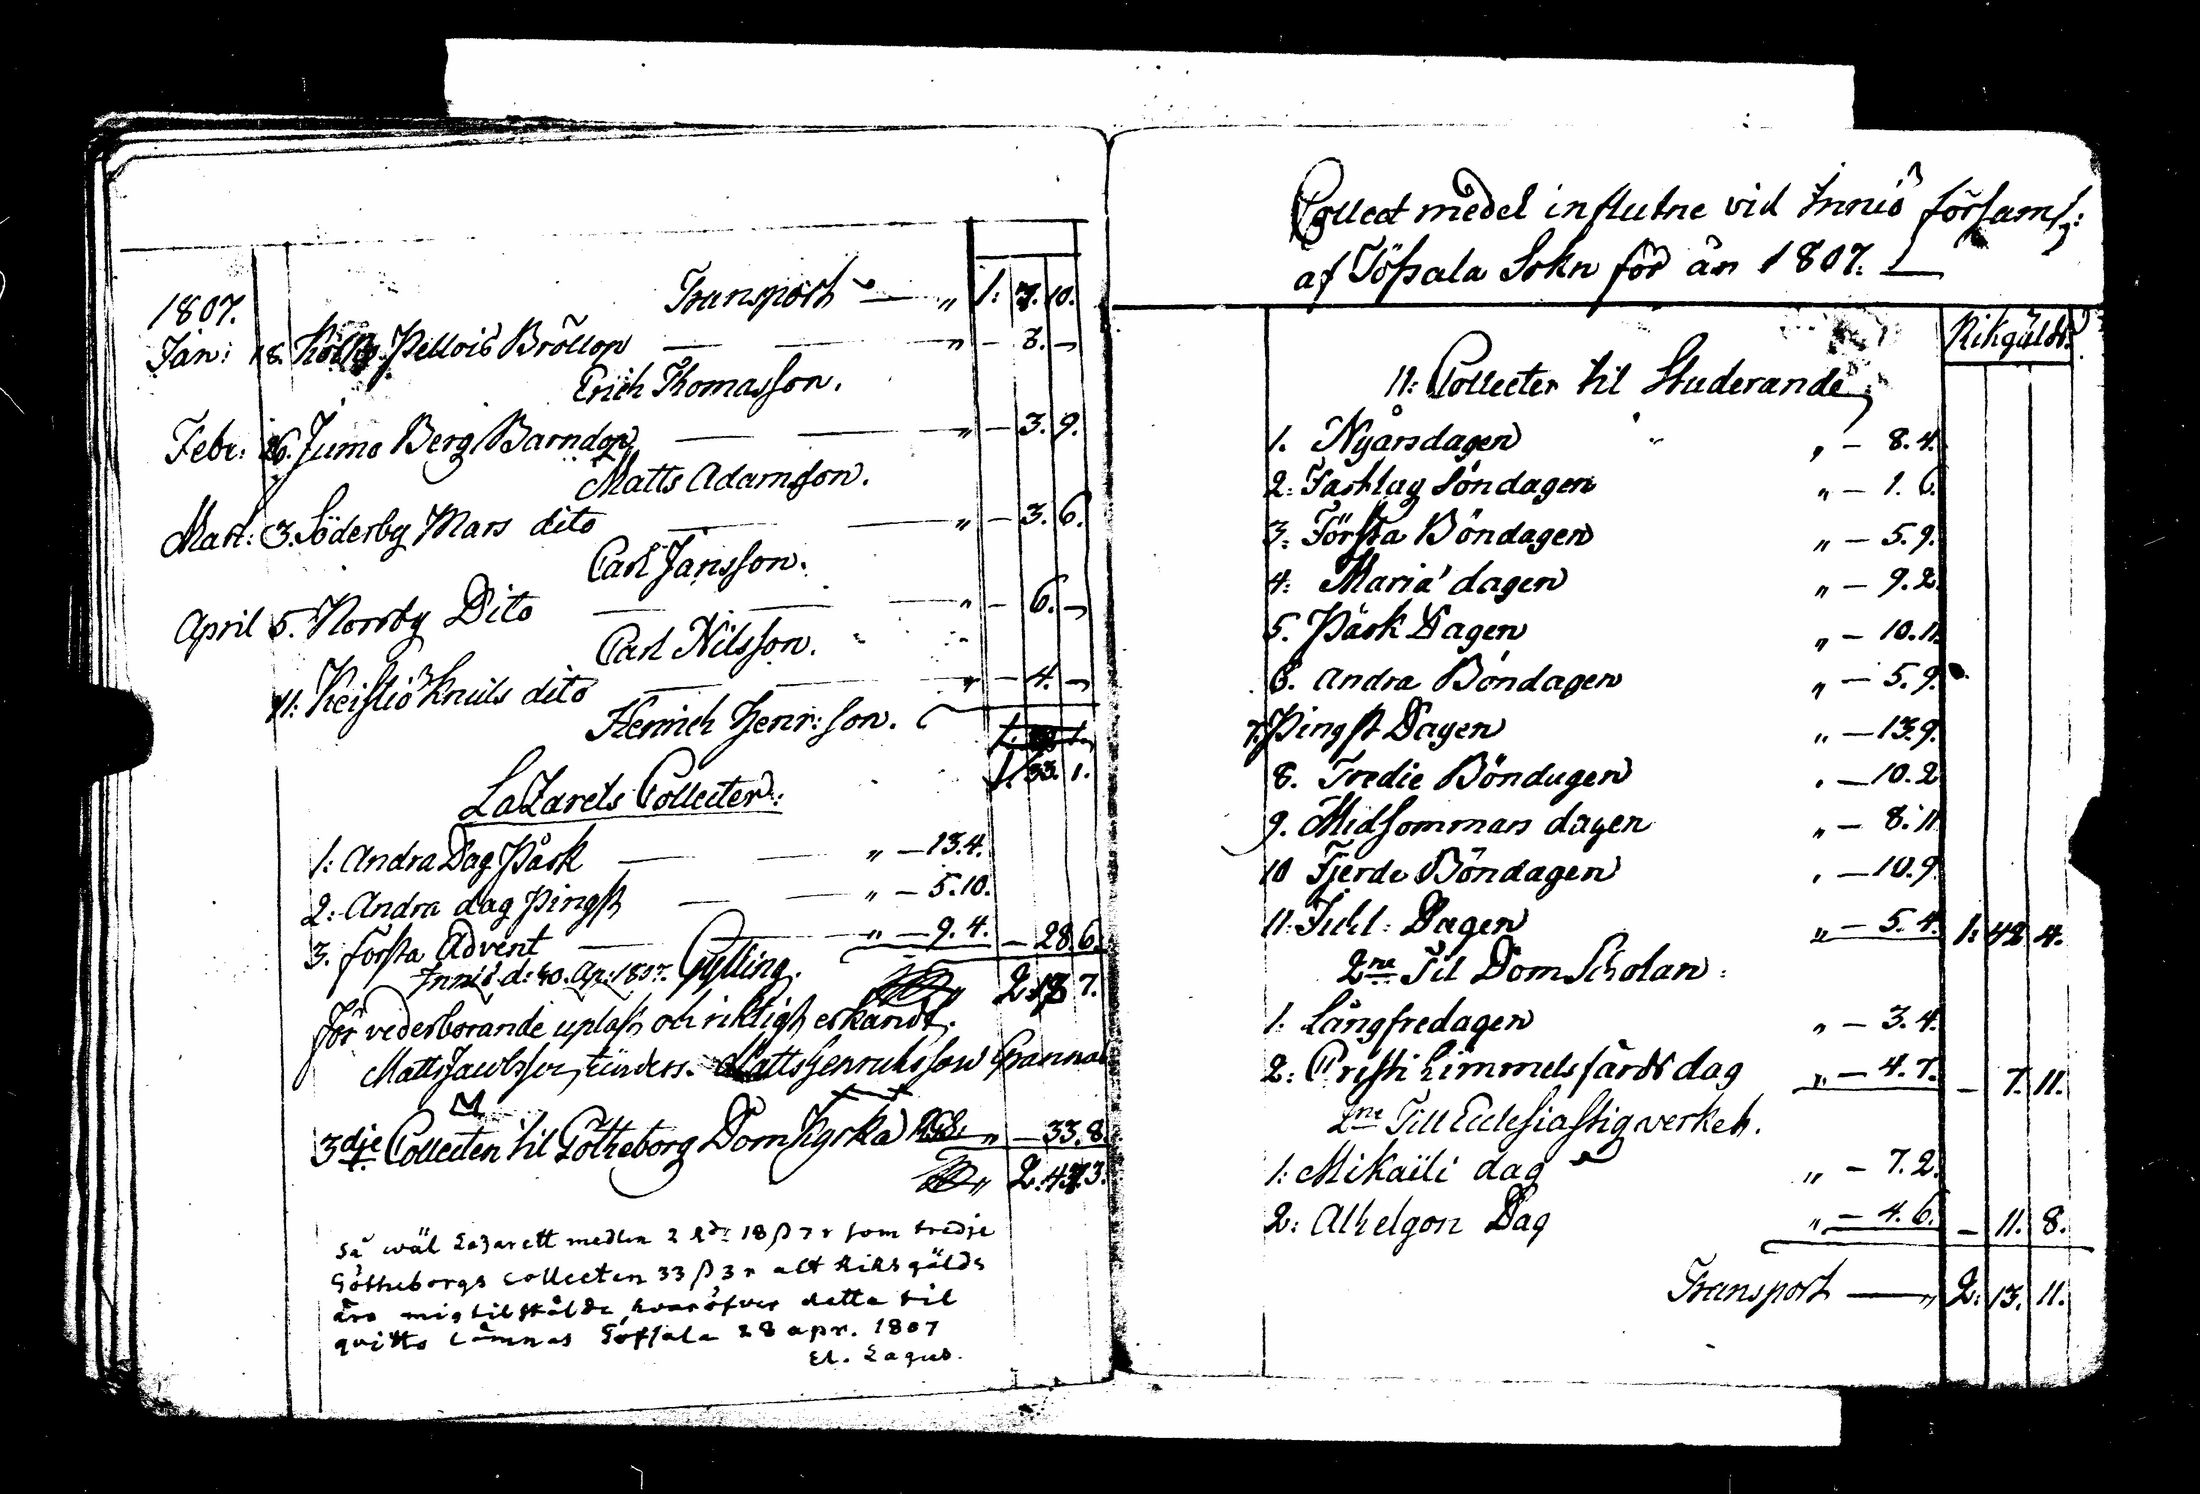 Transport — " 1: 7. 10.
1807.
Jan: 18. Pellois Bröllop — — " — 3. —
Erich Thomasson.
Febr: 26. Jumo Berg Barndop — — " — 3. 9.
Matts Adamsson.
Mart: 3. Söderby Mars dito — — " — 3. 6.
Carl Jansson.
April 5. Norrby Dito — — — " — 6. —
Carl Nilsson.
11: Keistiö Knuts dito — — " — 4. —
Henrich Henr:son.
1. 33. 1.
Lazarets Collecter:
1: Andra Dag Påsk — — " — 13. 4.
2: Andra dag Pingst — — " — 5. 10.
3. första Advent — — " — 9. 4. — 28. 6.
Inniö d: 30. Ap: 1807. Gylling.
2. 13 7.
för vederbörande upläst och riktigt erkändt.
Matts Jacobsson, Matts Henrichsson Grannas
3dje Collecten til Götheborg Dom Kyrka " — 33. 8.
" 2: 47. 3.
Så wäl Lazarett medlen 2 Rdr 18 ß 7 r som tredje
Götheborgs Collecten 33 ß 3 r alt Riksgälds
äro mig tilstälde, hvaröfver detta til
qvitto lämnas Töfsala 28 apr. 1807
El. Lagus.
Collect medel influtne vid Inniö församl:
af Töfsala Sokn för år 1807. —
Riksgälds
11: Collecter til Studerande
1. Nyårsdagen " — 8. 4.
2: Fastlag Söndagen " — 1. 6.
3: Första Böndagen " — 5. 9.
4: Mariæ dagen " — 9. 2.
5. Påsk Dagen " — 10. 11.
6. Andra Böndagen " — 5. 9.
7. Pingst Dagen " — 13. 9.
8. Tredie Böndagen " — 10. 2
9. Midsommars dagen " — 8. 11
10 Fjerde Böndagen " — 10. 9.
11: Juhl: Dagen " — 5. 4. 1: 42 4.
2ne Til Dom Scholan:
1: Långfredagen " — 3. 4.
2: Cristi himmelsfärds dag " — 4. 7. — 7. 11.
2ne Till Ecclesiastigverket.
1: Mikaëli dag " — 7. 2.
2: Alhelgon Dag " — 4. 6. — 11. 8.
Transport — " 2: 13. 11.